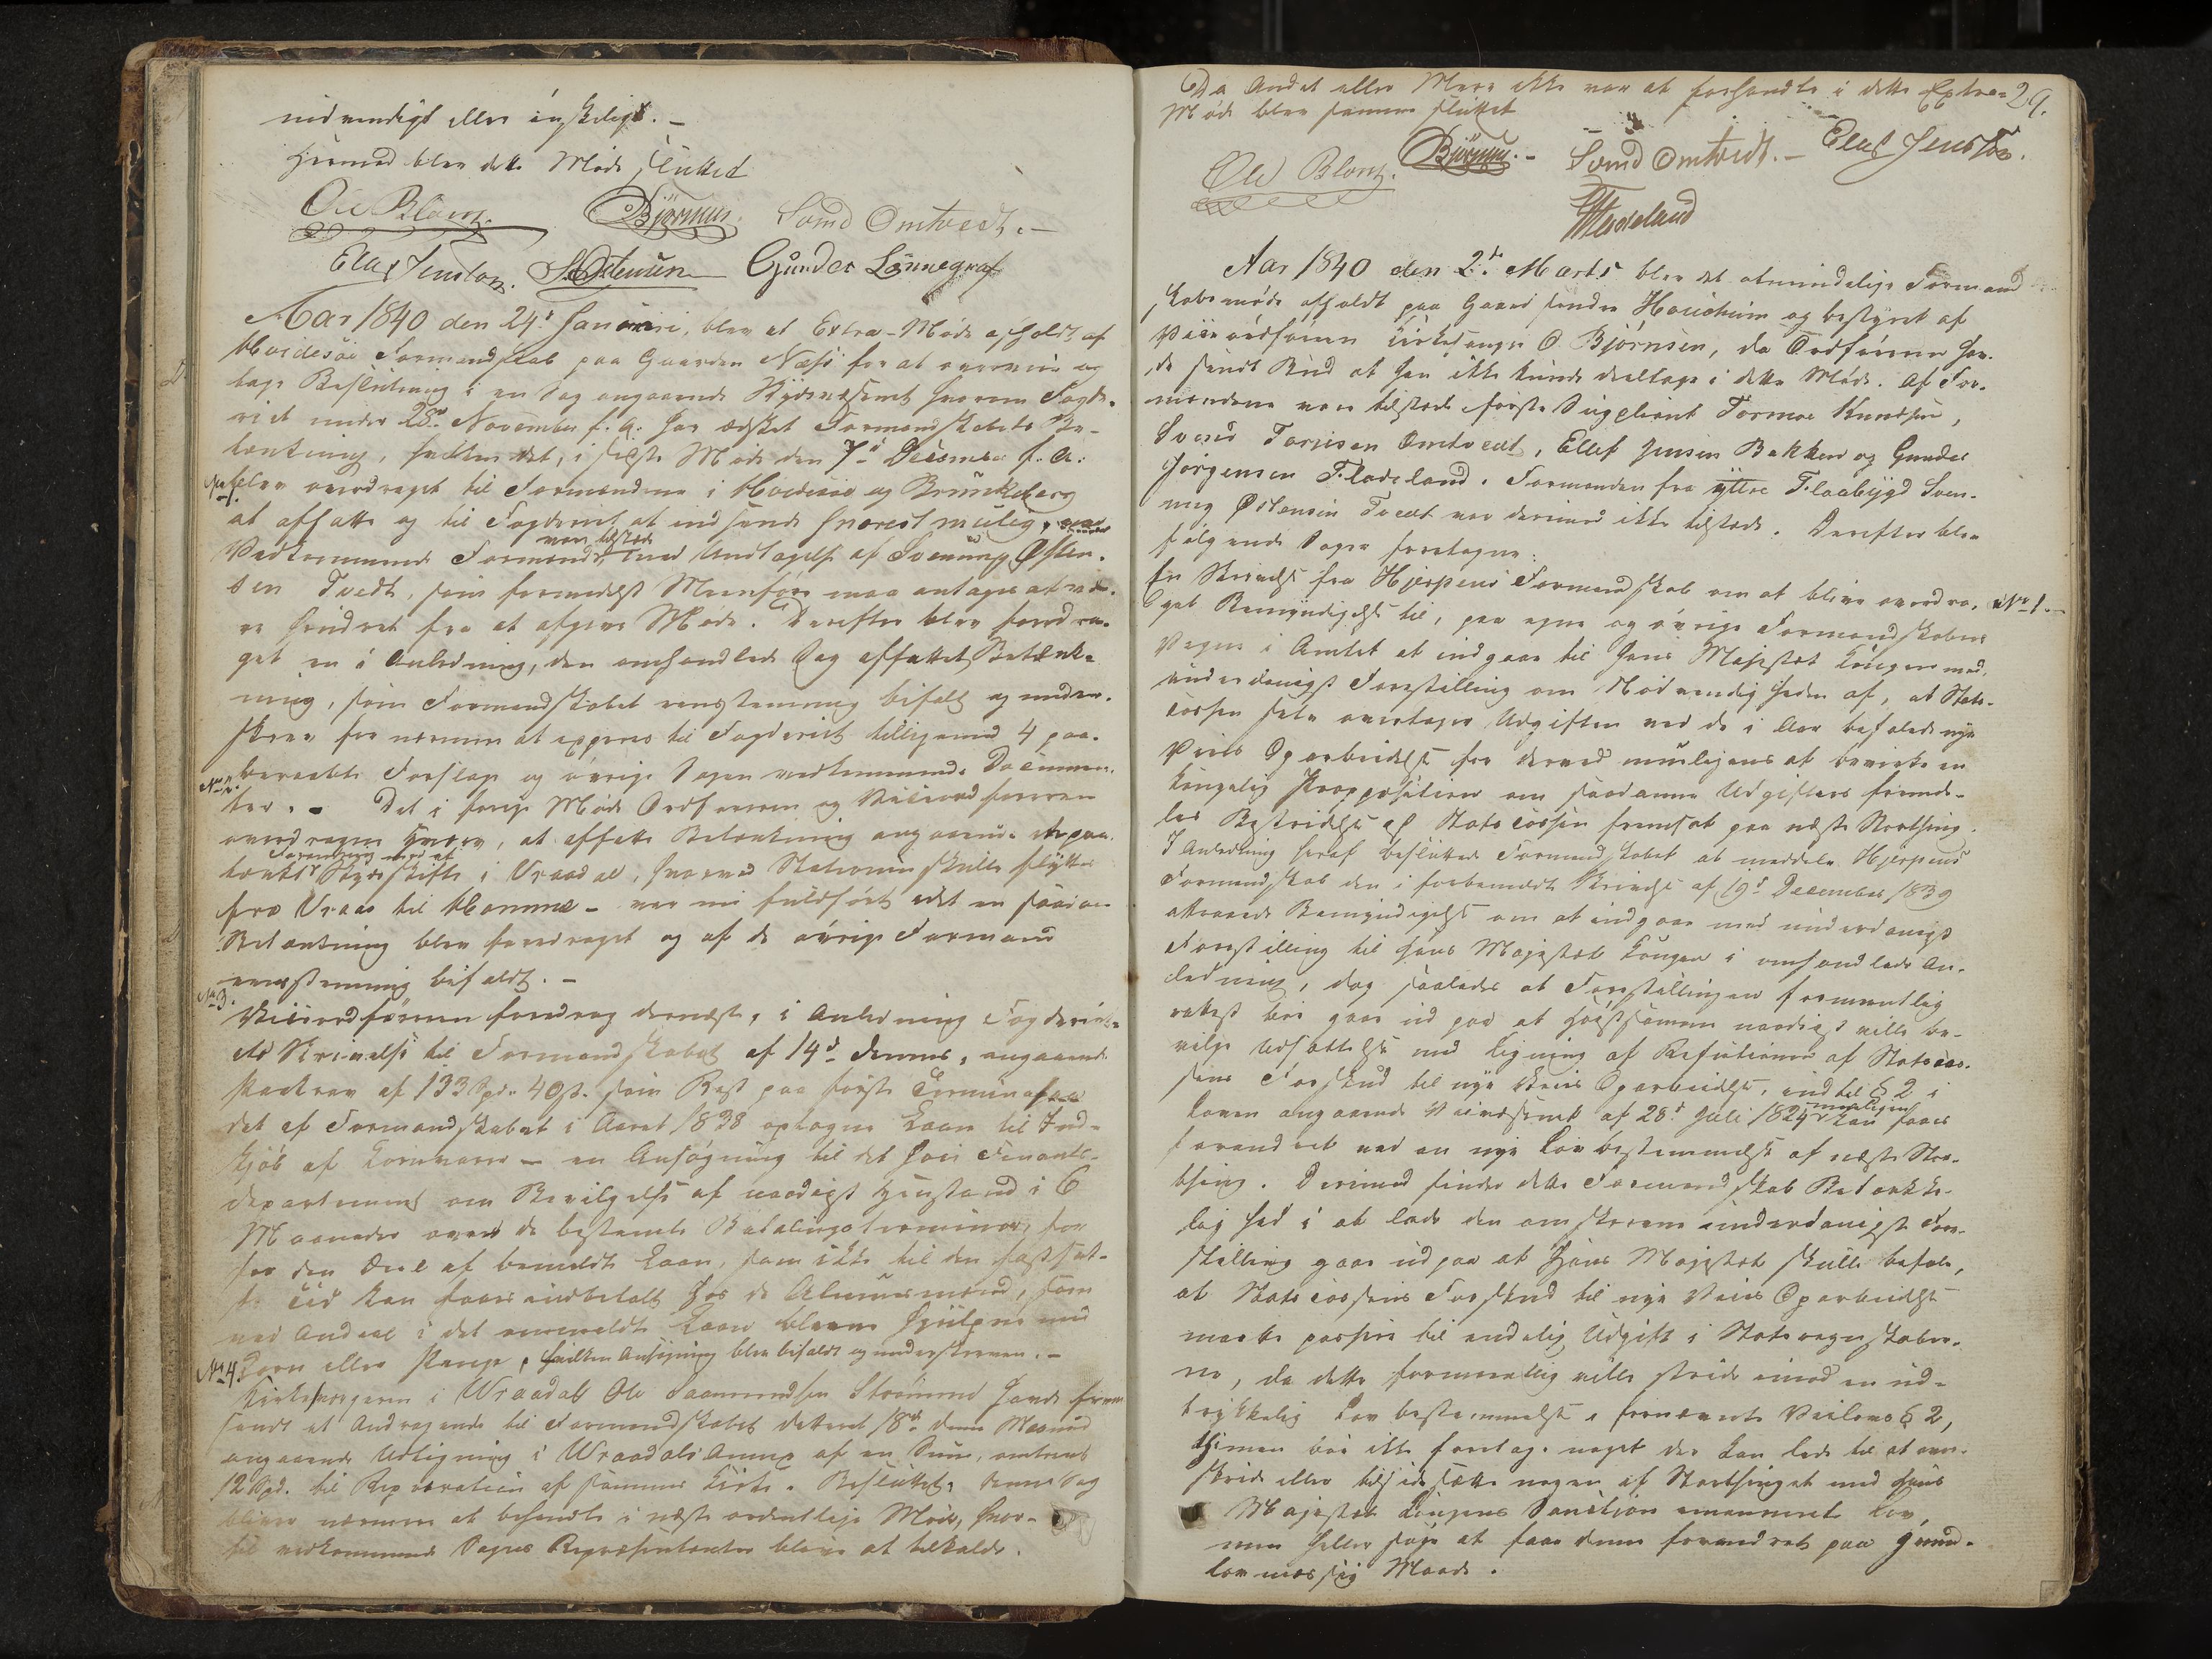 nødvendigt eller ønskeligt. –
Hermed blev dette Møde sluttet
Ole Blom. Bjørnsen. Svend Omtvedt. –
Ellef Jenssøn. S. Østensen Gunder Lønnegraf
Aar 1840 den 24de Januari, blev et Extra-Møde afholdt af
Hvidesøe Formandskab paa Gaarden Næss for at overveie og
tage Beslutning i en Sag angaaende Skydsvæsenet hvorom Fogde-
riet under 28de November f. A. har æsket Formandskabets Be-
tænkning, hvilken det, i sidste Møde den 7de December f. A.
No 1. blev overdraget til Formændene i Hvidesøe og Brunkeberg
at affatte og til Fogderiet at indsende snarest mulig,
Vedkommende Formænd vare tilstede med Undtagelse af Svenung Østen-
sen Tvedt, som formedelst Menføre maa antages at væ-
re hindret fra at afgive Møde. Derefter blev foredra-
get en i Anledning, den omhandlede Sag affattet Betænk-
ning, som Formandskabet eenstemmig bifalt og under-
skrev for nærmere at expeders til Fogderiet tilligemed 4 paa-
beraabte Forslag og øvrige Sagen vedkommende Documen-
No 2. ter. – Det i forrige Møde Ordføreren og Viceordføreren
overdragne Hverv, at affatte Betænkning angaaende den paa-
tænkte Forandring med af Skydsskifte i Vraadal, hvorved Stationen skulle flyttes
fra Vraae til Homme – var nu fuldført, idet en saadan
Betænkning blev foredraget og af de øvrige Formænd
eenstemmig bifaldt. –
No 3.
Viceordføreren foredrog dernæst, i Anledning Fogderi-
ets Skrivelse til Formandskabet af 14de dennes, angaaende
Paakrav af 133 Spd. 40 s. som Rest paa første Termin af
det af Formandskabet i Aaret 1838 optagne Laan til Ind-
kjøb af Kornvarer – en Ansøgning til det Høie Finants-
departement om Bevilgelse af naadigst Henstand i 6
Maaneder over de bestemte Betalingsterminer for
for den Deel af bemeldte Laan, som ikke til den fastsat-
te Tid kan faaes indbetalt hos de Almuesmænd, som
ved Andeel i det anmeldte Laan bleve hjulpne med
No 4. Korn eller Penge, hvilken Ansøgning blev bifaldt og underskreven. –
Kirkesangeren i Wraadal Ole Saamundsen Strømmen havde frem-
sendt et Andragende til Formandskabet dateret 18de denne Maaned
angaaende Udligning i Wraadals Annex af en Sum, omtrent
12 Spd. til Reparation af sammes Kirke. Besluttet: Denne Sag
bliver nærmere at behandle i næste ordentlige Møde, hvor-
til vedkommende Sognes Repræsentanter bliver at tilkalde.
Da Andet eller Mere ikke var at forhandle i dette Extra- 29.
Møde blev samme sluttet
Ole Blom. Bjørnsen. – Svend Omtvedt. – Ellef Jenssøn.
Fladeland
Aar 1840 den 2de Marts blev det almindelige Formand-
skabsmøde afholdt paa Gaard søndre Hvideseim og bestyret af
Viceordføreren Kirkesanger O. Bjørnsen, da Ordføreren hav-
de sendt Bud at han ikke kunde deeltage i dette Møde. Af For-
mændene vare tilstede første Suppleant Tormoe Knudsen,
Svend Torjusen Omtvedt, Ellef Jensen Bakken og Gunder
Jørgensen Fladeland. Formanden fra yttre Flaabygd Sven-
ung Østensen Tvedt var derimod ikke tilstede. Derefter blev
følgende Sager foretagne:
En Skrivelse fra Hjerpens Formandskab om at blive overdra- No 1. –
get Bemyndigelse til, paa egne og øvrige Formandskabers
Vegne i Amtet at indgaae til Hans Majestæt Kongen med
underdanigst Forestilling om Nødvendigheden af, at Stats-
cassen selv overtager Udgiften ved de i Aar befalede nye
Veies Oparbeidelse for derved muligens at bevirke en
kongelig Proposition om saadanne Udgifters fremde-
les Bestridelse af Statscassen fremsat paa næste Storthing.
I Anledning heraf besluttede Formandskabet at meddele Hjerpens
Formandskab den i forbenævnte Skrivelse af 19de December 1839
attraaede Bemyndigelse om at indgaae med underdanigst
Forestilling til Hans Majestæt Kongen i omhandlede An-
ledning, dog saaledes at Forestillingen formentlig
rettest bør gaae ud paa at Høistsamme naadigst ville be-
vilge Udsættelse med Ligning af Refusionen af Statscas-
sens Forskud til nye Veies Oparbeidelse, indtil § 2 i
Loven angaaende Veivæsenet af 28de Juli 1824 muligen kan faaes
forandret ved en nye Lovbestemmelse af næste Stor-
thing. Derimod finder dette Formandskab Betænke-
lighed i at lade den omskrevne underdanigste Fore-
stilling gaae ud paa at Hans Majestæt skulle befale,
at Statscassens Forskud til nye Veies Oparbeidelse
maatte passere til endelig Udgift i Statsregnskaber-
ne, da dette formeentlig ville stride imod en ud-
trykkelig Lovbestemmelse i forenævnte Veilovs § 2,
thi man bør ikke foretage noget der kan lede til at over-
skride eller tilsidesætte nogen af Storthinget med Hans
Majestæt Kongens Sanction emanerede Lov,
men heller søge at faae denne forandret paa grund-
lovmæssig Maade.